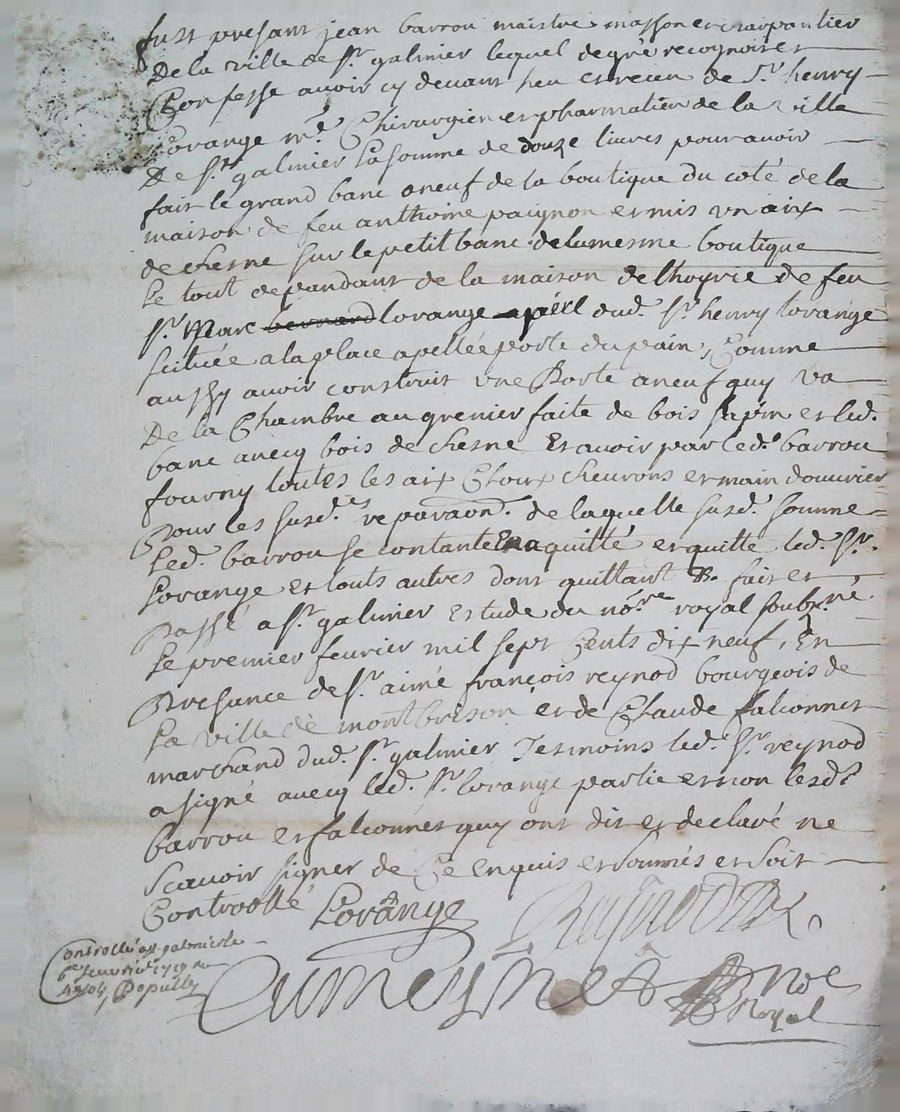 fust presant jean barrou maistre masson et charpantier
De la ville de St galmier lequel de gré recognoit et
Confesse avoir cy devant heu et receu de Sr henry
Lorange me Chirurgien et pharmatien de la ville
De St galmier la somme de douze livres pour avoir
fait le grand banc aneuf de la boutique du coté de la
maison de feu anthoine paignon et mis un aix
de chesne sur le petit banc de la mesme boutique
Le tout depandant de la maison de lhoyrie de feu
Sr Marc bernard lorange dud. Sr henry lorange
scituée a la place apellée porte du pain, Comme
aussy avoir construit une Porte aneuf quy va
De la Chambre au grenier faite de bois sapin et led.
banc avecq bois de chesne Et avoir par led. barrou
fourny toutes les aix Cloux chevrons et main douvrier
Pour les susd.es reparaon. de laquelle susd. somme
Led. barrou se contante En a quitté et quitte led. Sr.
Lorange et touts autres dont quittant &. fait et
Passé a St galmier Estude du nore royal soubz.né
Le premier fevrier mil sept Cents dix neuf, En
Presance de Sr aimé françois reynod bourgeois de
La ville de montbrison et de Claude falconnet
marchand dud. St galmier Tesmoins led. Sr reynod
a signé avecq led. Sr lorange partie et non lesd.
barrou et falconnet quy ont dit et declaré ne
scavoir signer de Ce enquis et sommés et soit
Controollé Lorange
Reynod
Controllé a St galmier le
6e fevrier 1719
Noe
Royal